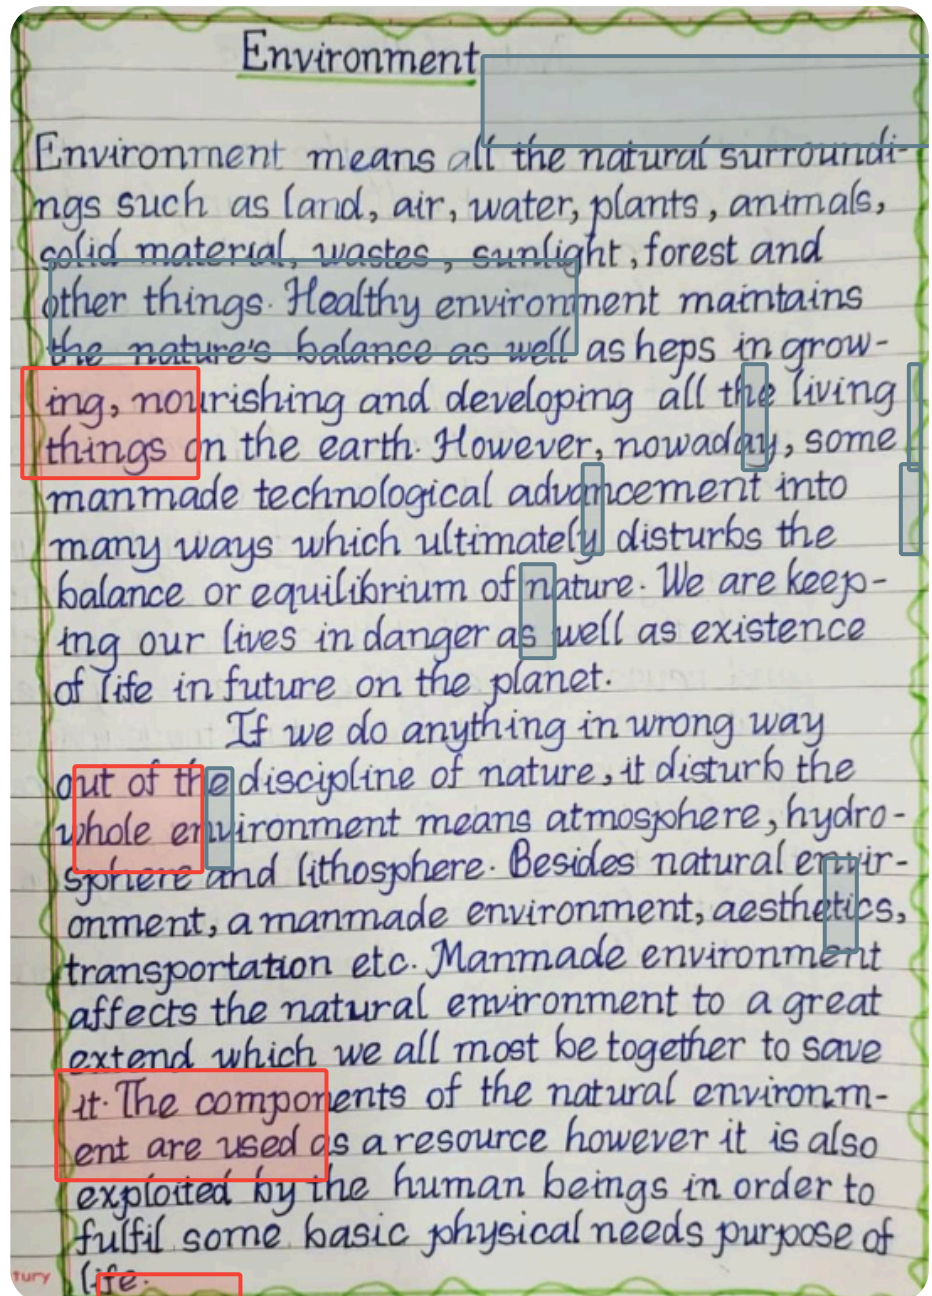 Environment
Environment means all the natural surroundi-
ngs such as land, air, water, plants, animals,
solid material, wastes, sunlight, forest and
other things. Healthy environment maintains
the nature's balance as well as heps in grow-
ing, nourishing and developing all the living
things on the earth. However, nowaday, some
manmade technological advancement into
many ways which ultimately disturbs the
balance or equilibrium of nature. We are keep-
ing our lives in danger as well as existence
of life in future on the planet.
If we do anything in wrong way
out of the discipline of nature, it disturb the
whole environment means atmosphere, hydro-
sphere and lithosphere. Besides natural envir-
onment, a manmade environment, aesthetics,
transportation etc. Manmade environment
affects the natural environment to a great
extend which we all most be together to save
it. The components of the natural environm-
ent are used as a resource however it is also
exploited by the human beings in order to
fulfil some basic physical needs purpose of
life.
tury